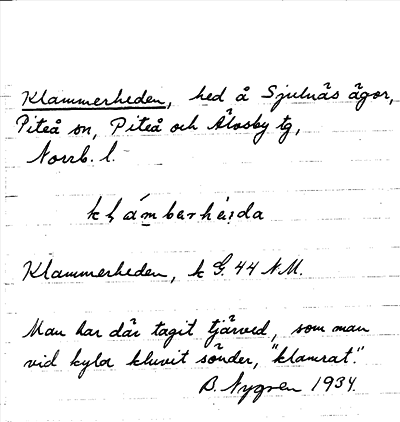 Klammerheden, hed å Sjulnäs ägor,
Piteå sn, Piteå och Älvsby tg,
Norrb. l.
klámbarhèida
Klammerheden, k G. 44 NM.
Man har där tagit tjärved, som man
vid kyla kluvit sönder, "klamrat".
B. Nygren 1934.